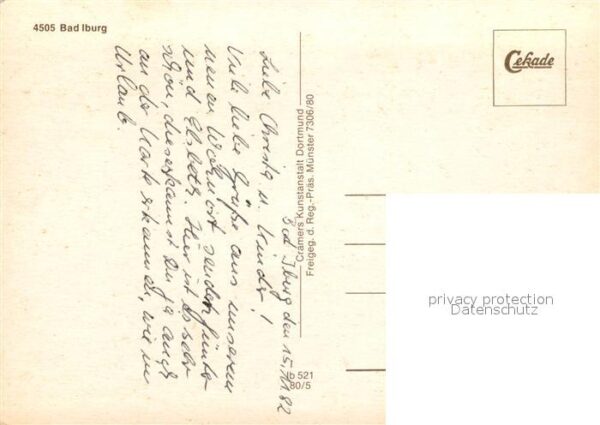 4505 Bad Iburg
Cekade
Cramers Kunstanstalt Dortmund
Freigeg. d. Reg.-Präs. Münster 7306/80
Ib 521
80/5
Bad Iburg den 15.11.82
Liebe Christa u. Kinder!
Viele liebe Grüße aus unserem
neuen Wohnort senden Günter
und Hier ist es sehr
schön, dieses kannst Du ja auch
an der Karte erkennen, wie im
Urlaub.
privacy protection
Datenschutz